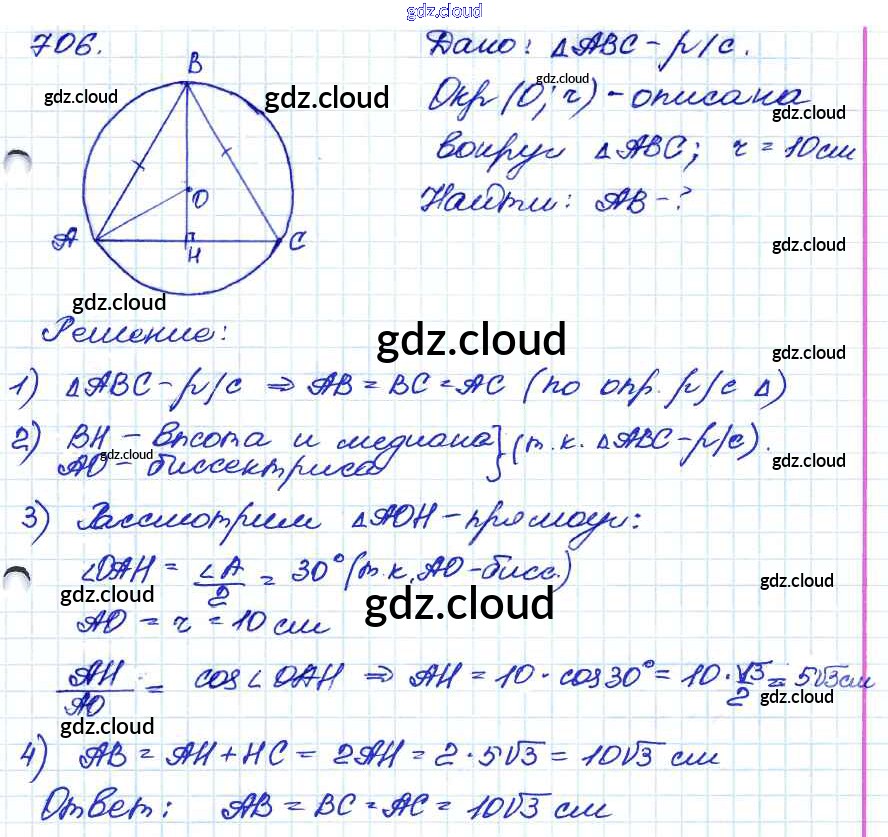 gdz.cloud
706.
Дано: △ABC – р/с.
Окр (O; r) – описана
вокруг △ABC; r = 10 см
Найти: AB – ?
B
O
A
H
C
gdz.cloud
gdz.cloud
gdz.cloud
gdz.cloud
gdz.cloud
gdz.cloud
Решение:
gdz.cloud
gdz.cloud
1) △ABC – р/с ⇒ AB = BC = AC (по опр. р/с △)
2) BH – высота и медиана } (т.к. △ABC – р/с).
AO – биссектриса
gdz.cloud
gdz.cloud
3) Рассмотрим △AOH – прямоуг:
∠OAH = ∠A/2 = 30° (т.к. AO – бисс.)
gdz.cloud
gdz.cloud
gdz.cloud
AO = r = 10 см
AH/AO = cos∠OAH ⇒ AH = 10 · cos 30° = 10 · √3/2 = 5√3 см
gdz.cloud
gdz.cloud
4) AB = AH + HC = 2AH = 2 · 5√3 = 10√3 см
Ответ: AB = BC = AC = 10√3 см